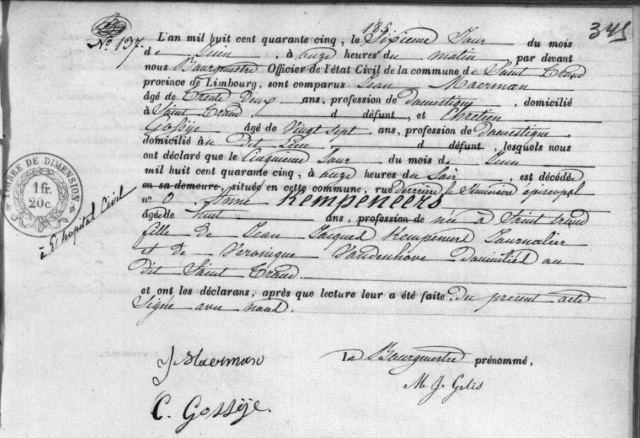 345
No 137.
L'an mil huit cent quarante cinq, le Sixieme Jour du mois
d e Juin, à onze heures du matin, par devant
nous Bourgmestre Officier de l'état Civil de la commune de Saint Trond
province de Limbourg, sont comparus Jean Maerman
âgé de Trente Deux ans, profession de Domestique, domicilié
à Saint Trond d défunt, et Chretien
Gossije âgé de Vingt Sept ans, profession de Domestique
domicilié au Dit Lieu d défunt, lesquels nous
ont déclaré que le Cinquieme Jour du mois de Juin
mil huit cent quarante cinq, à onze heures du Soir, est décédée
en sa demeure, située en cette commune, rue Derriere le Seminaire episcopal
no 0 Anne Kempeneers
à l'hopital Civil
TIMBRE DE DIMENSION
1 fr.
20 c.
âgée de huit ans, profession de née à Saint trond
fille de Jean Jacques Kempeneers Journalier
et de Veronique Vandenhove Domicilied au
dit Saint Trond.
et ont les déclarans, après que lecture leur a été faite, du présent acte
Signé avec nous.
J Maerman
Le Bourgmestre prénommé,
M. J. Gelis
C. Gossije.